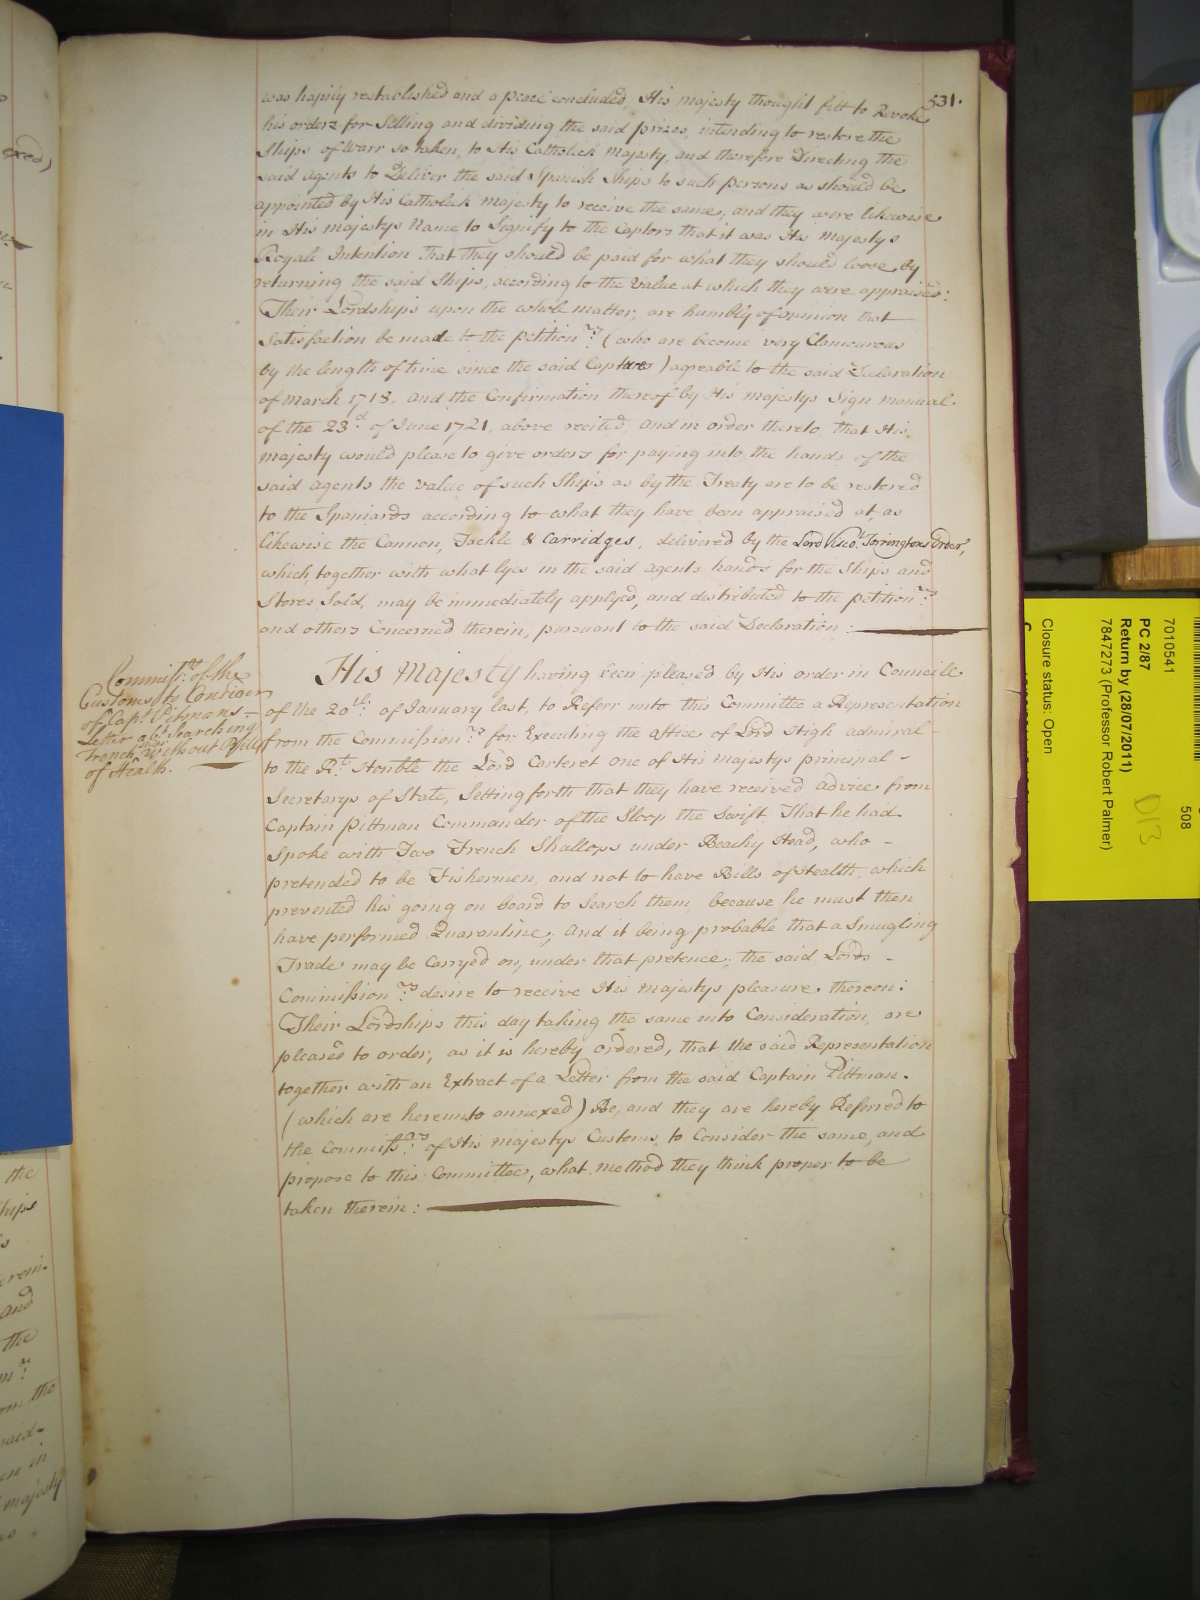 531.
was hapily restablished and a peace concluded, His Majesty thought fitt to Revoke
his orders for Selling and dividing the said prizes, intending to restore the
Ships of Warr so taken, to His Catholick Majesty, and therefore Directing the
said Agents to Deliver the said Spanish Ships to such persons as should be
appointed by His Catholick Majesty to receive the same; and they were likewise
in His Majestys Name to Signify to the Captors that it was His Majestys
Royall Intention That they should be paid for what they should loose by
returning the said Ships, according to the Value at which they were appraised:
Their Lordships upon the whole matter, are humbly of opinion that
Satisfaction be made to the petition.rs (who are become very Clamourous
by the length of time since the said Captures) agreable to the said Declaration
of March 1718. and the Confirmation thereof by His Majestys Sign Manual
of the 23d. of June 1721. above recited, and in order thereto, that His
Majesty would please to give orders for paying into the hands of the
said Agents the value of such Ships as by the Treaty are to be restored
to the Spaniards according to what they have been appraised at, as
likewise the Cannon, Tackle & Carridges, delivered by the Lord Viscot. Torringtons Order,
which, together with what lyes in the said Agents hands for the Ships and
Stores Sold, may be immediately applyed, and distributed to the petition.rs
and others Concerned therein, pursuant to the said Declaration:
Commissrs. of the
Customs to Consider
of Capt. Pitmans
Letter abt. Searching
French Ships without Bills
of Health.
His Majesty having been pleased by His order in Councill
of the 20th. of January last, to Referr unto this Committee a Representation
from the Commission.rs for Executing the office of Lord High Admiral
to the Rt. Honble the Lord Carteret one of His Majestys principal
Secretarys of State, Setting forth that they have received advice from
Captain Pittman Commander of the Sloop the Swift That he had
Spoke with Two French Shallops under Beachy Head, who
pretended to be Fishermen, and not to have Bills of Health, which
prevented his going on board to Search them, because he must then
have performed Quarantine; And it being probable that a Smugling
Trade may be Carryed on, under that pretence; the said Lords
Commission.rs desire to receive His Majestys pleasure thereon:
Their Lordships this day taking the same into Consideration, are
pleased to order, as it is hereby ordered, that the said Representation
together with an Extract of a Letter from the said Captain Pittman.
(which are hereunto annexed) Be, and they are hereby Referred to
the Commissrs. of His Majestys Customs, to Consider the same, and
propose to this Committee, what method they think proper to be
taken therein:
7010541
PC 2/87
Return by (28/07/2011)
7847273 (Professor Robert Palmer)
Closure status: Open
508
D13
the
and
the
majesty